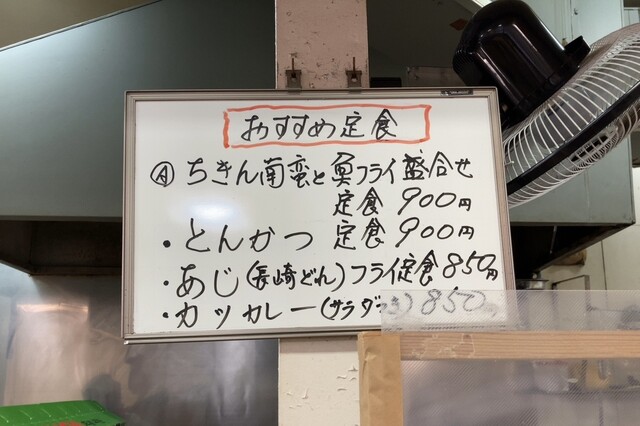 おすすめ定食
Ⓐ ちきん南蛮と魚フライ盛合せ
定食 900円
・とんかつ 定食 900円
・あじ(長崎どれ)フライ定食 850円
・カツカレー(サラダつき) 850円